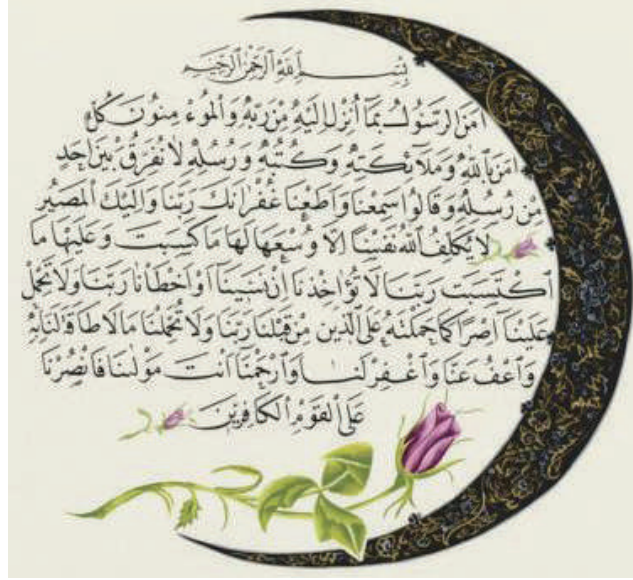 بِسْمِ ٱللَّهِ ٱلرَّحْمٰنِ ٱلرَّحِيمِ
اٰمَنَ ٱلرَّسُولُ بِمَآ اُنْزِلَ اِلَيْهِ مِنْ رَبِّهِ وَٱلْمُؤْمِنُونَ كُلٌّ
اٰمَنَ بِٱللَّهِ وَمَلَآئِكَتِهِ وَكُتُبِهِ وَرُسُلِهِ لَا نُفَرِّقُ بَيْنَ اَحَدٍ
مِنْ رُسُلِهِ وَقَالُوا سَمِعْنَا وَاَطَعْنَا غُفْرَانَكَ رَبَّنَا وَاِلَيْكَ ٱلْمَصِيرُ
لَا يُكَلِّفُ ٱللَّهُ نَفْسًا اِلَّا وُسْعَهَا لَهَا مَا كَسَبَتْ وَعَلَيْهَا مَا
ٱكْتَسَبَتْ رَبَّنَا لَا تُؤَاخِذْنَا اِنْ نَسِينَا اَوْ اَخْطَأْنَا رَبَّنَا وَلَا تَحْمِلْ
عَلَيْنَا اِصْرًا كَمَا حَمَلْتَهُ عَلَى ٱلَّذِينَ مِنْ قَبْلِنَا رَبَّنَا وَلَا تُحَمِّلْنَا مَا لَا طَاقَةَ لَنَا بِهِ
وَٱعْفُ عَنَّا وَٱغْفِرْ لَنَا وَٱرْحَمْنَا اَنْتَ مَوْلٰىنَا فَٱنْصُرْنَا
عَلَى ٱلْقَوْمِ ٱلْكَافِرِينَ